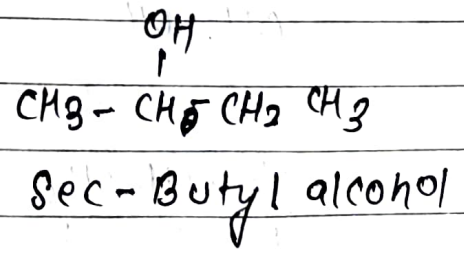 OH
CH3 - CH - CH2 CH3
Sec - Butyl alcohol